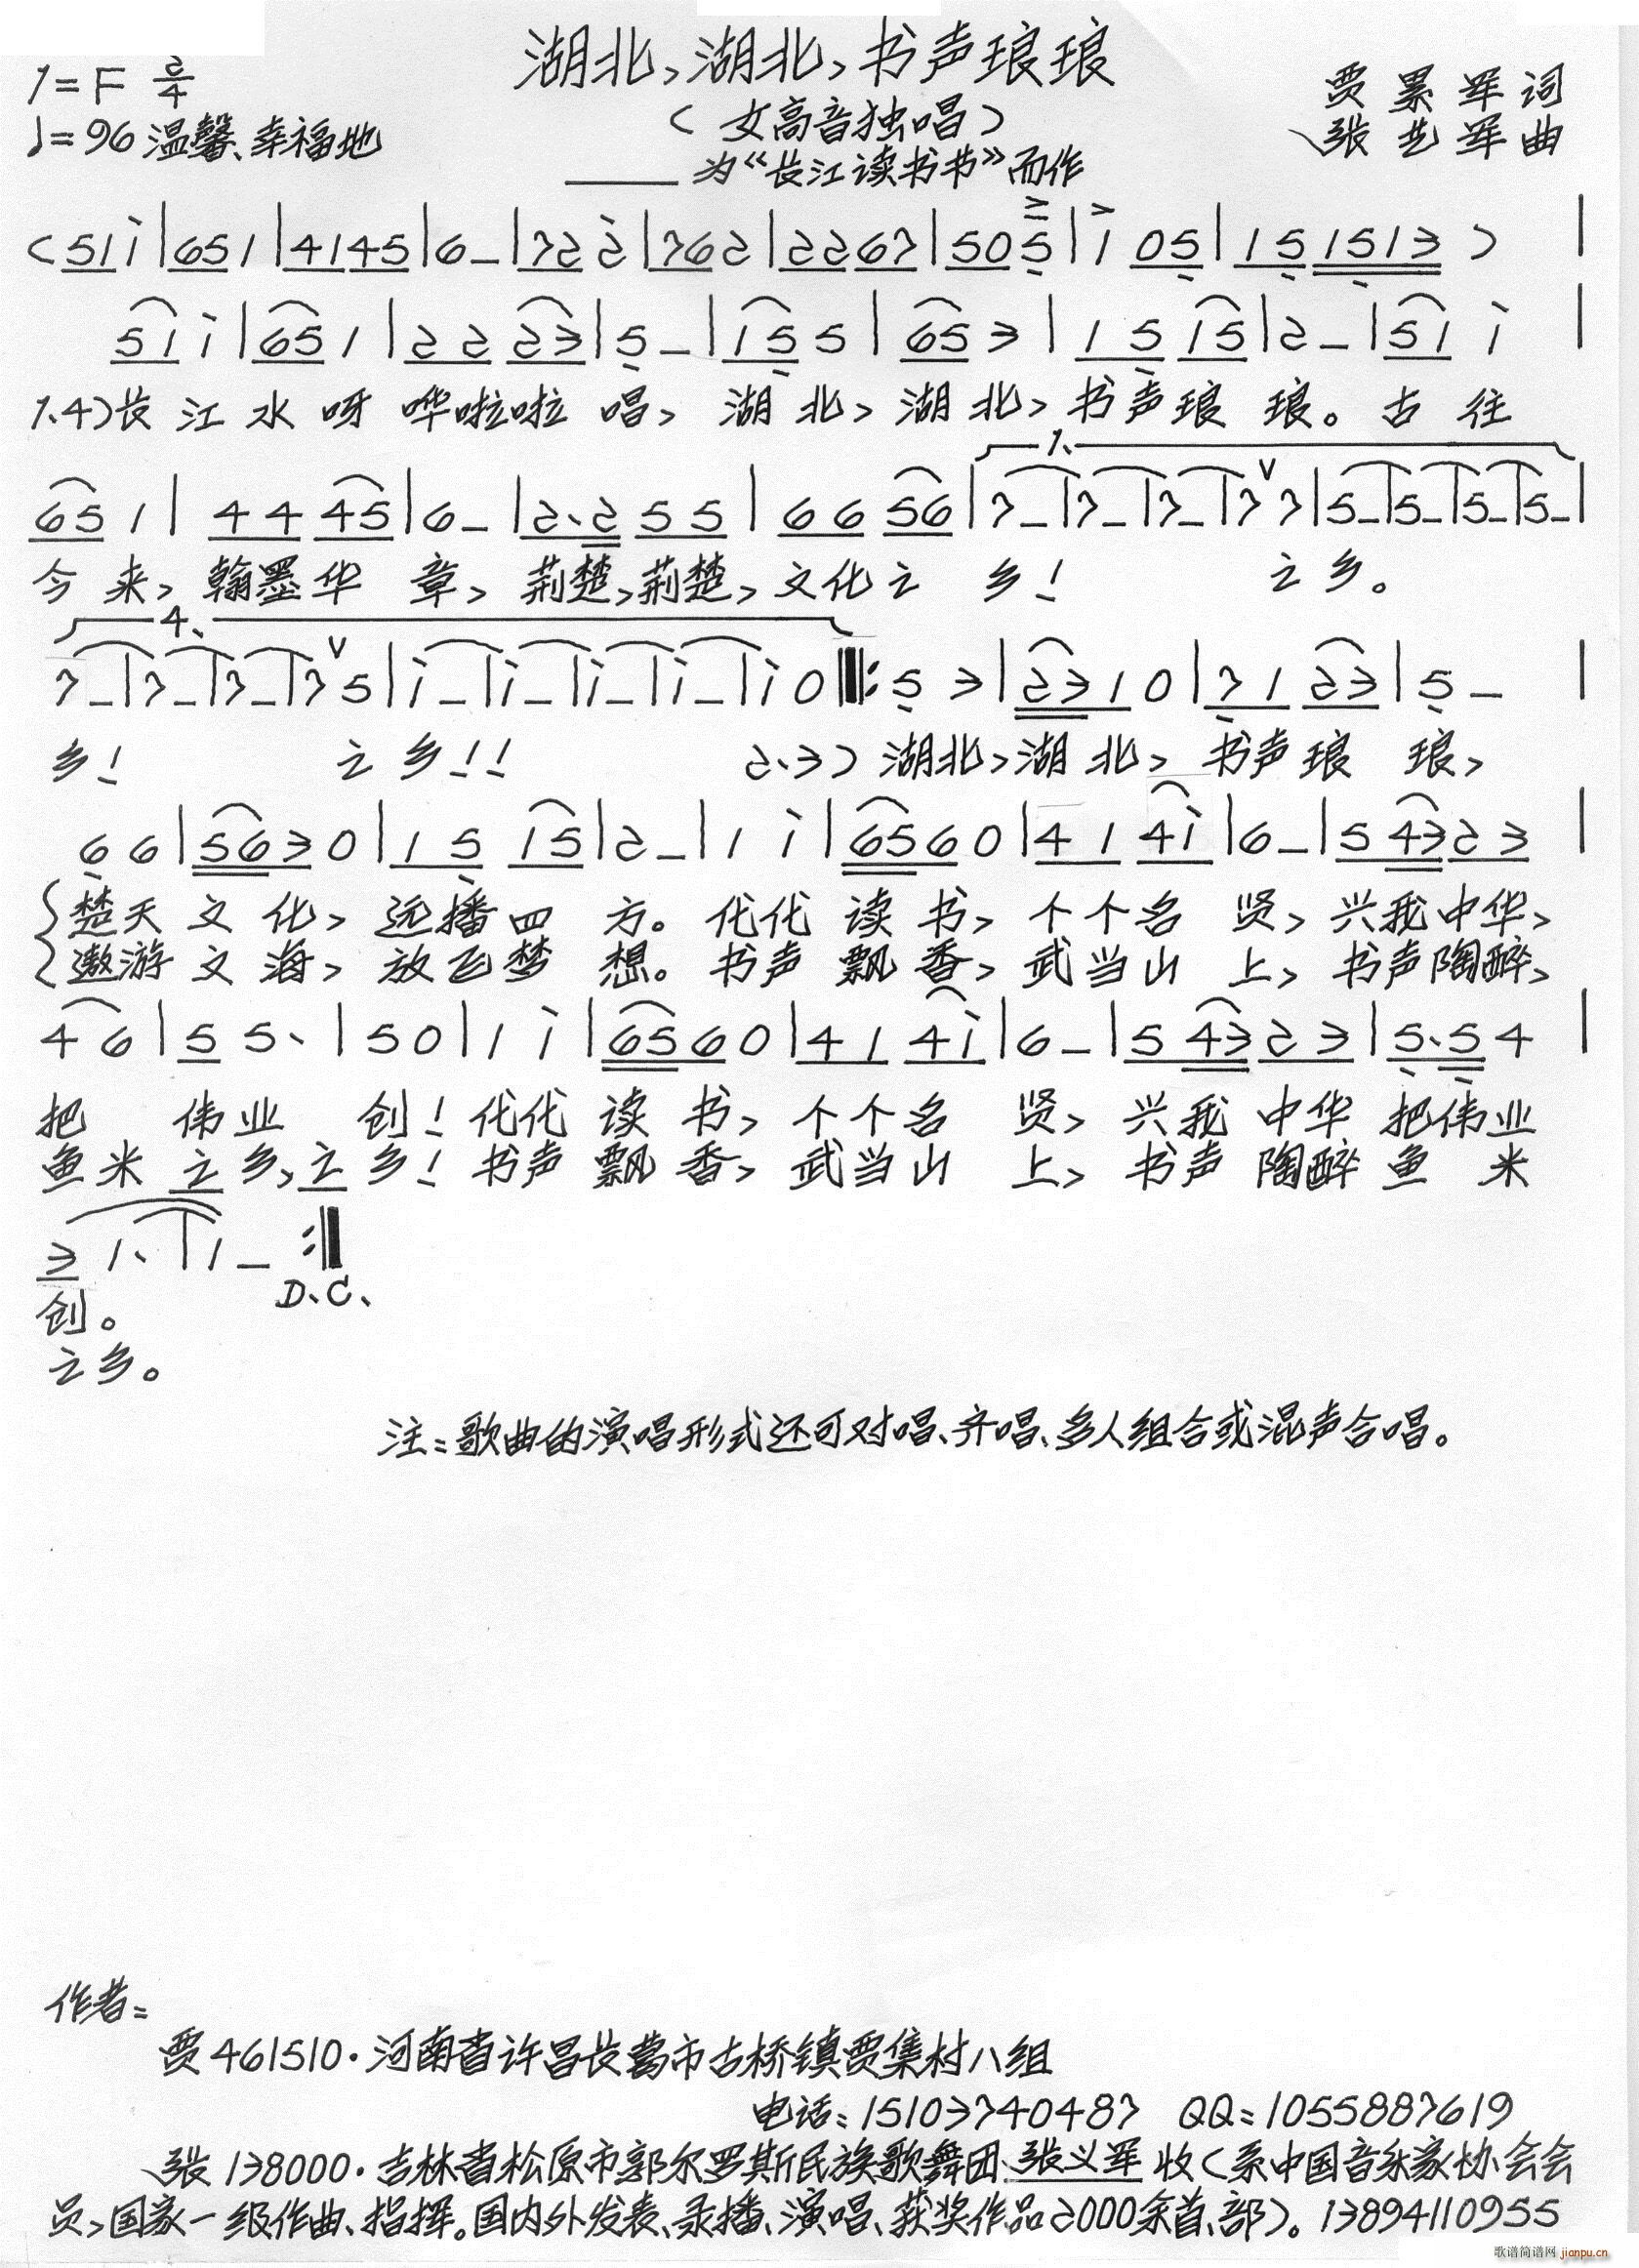 湖北,湖北,书声琅琅
1=F 2/4
(女高音独唱)
贾累军词
♩=96 温馨、幸福地
张艺军曲
——为“长江读书节”而作
(511̇|651|4145|6-|722̇|762|2267|505|1̇ 05|151513)|
511̇|651|2223|5-|155|653|1515|2-|511̇|
1.4)长江水呀哗啦啦唱,湖北,湖北,书声琅琅。古往
1.
651|4445|6-|2.255|6656|7-|7-|7-|7∨7|5-|5-|5-|5-|
今来,翰墨华章,荆楚,荆楚,文化之乡!之乡。
4.
7-|7-|7-|7∨5|1̇-|1̇-|1̇-|1̇-|1̇0‖:53|2310|7123|5-|
乡!之乡!!2.3)湖北,湖北,书声琅琅,
66|5630|1515|2-|11̇|6560|4141̇|6-|54323|
楚天文化,远播四方。代代读书,个个名贤,兴我中华,
遨游文海,放飞梦想。书声飘香,武当山上,书声陶醉,
46|55.|50|11̇|6560|4141̇|6-|54323|5.54|
把伟业创!代代读书,个个名贤,兴我中华把伟业
鱼米之乡,之乡!书声飘香,武当山上,书声陶醉鱼米
31.|1-:‖
D.C.
创。
之乡。
注:歌曲的演唱形式还可对唱、齐唱、多人组合或混声合唱。
作者:
贾461510·河南省许昌长葛市古桥镇贾集村八组
电话:15103740487 QQ:1055887619
张138000·吉林省松原市郭尔罗斯民族歌舞团张义军收(系中国音乐家协会会
员,国家一级作曲、指挥。国内外发表、录播、演唱、获奖作品2000余首、部)。13894110955
歌谱简谱网 jianpu.cn